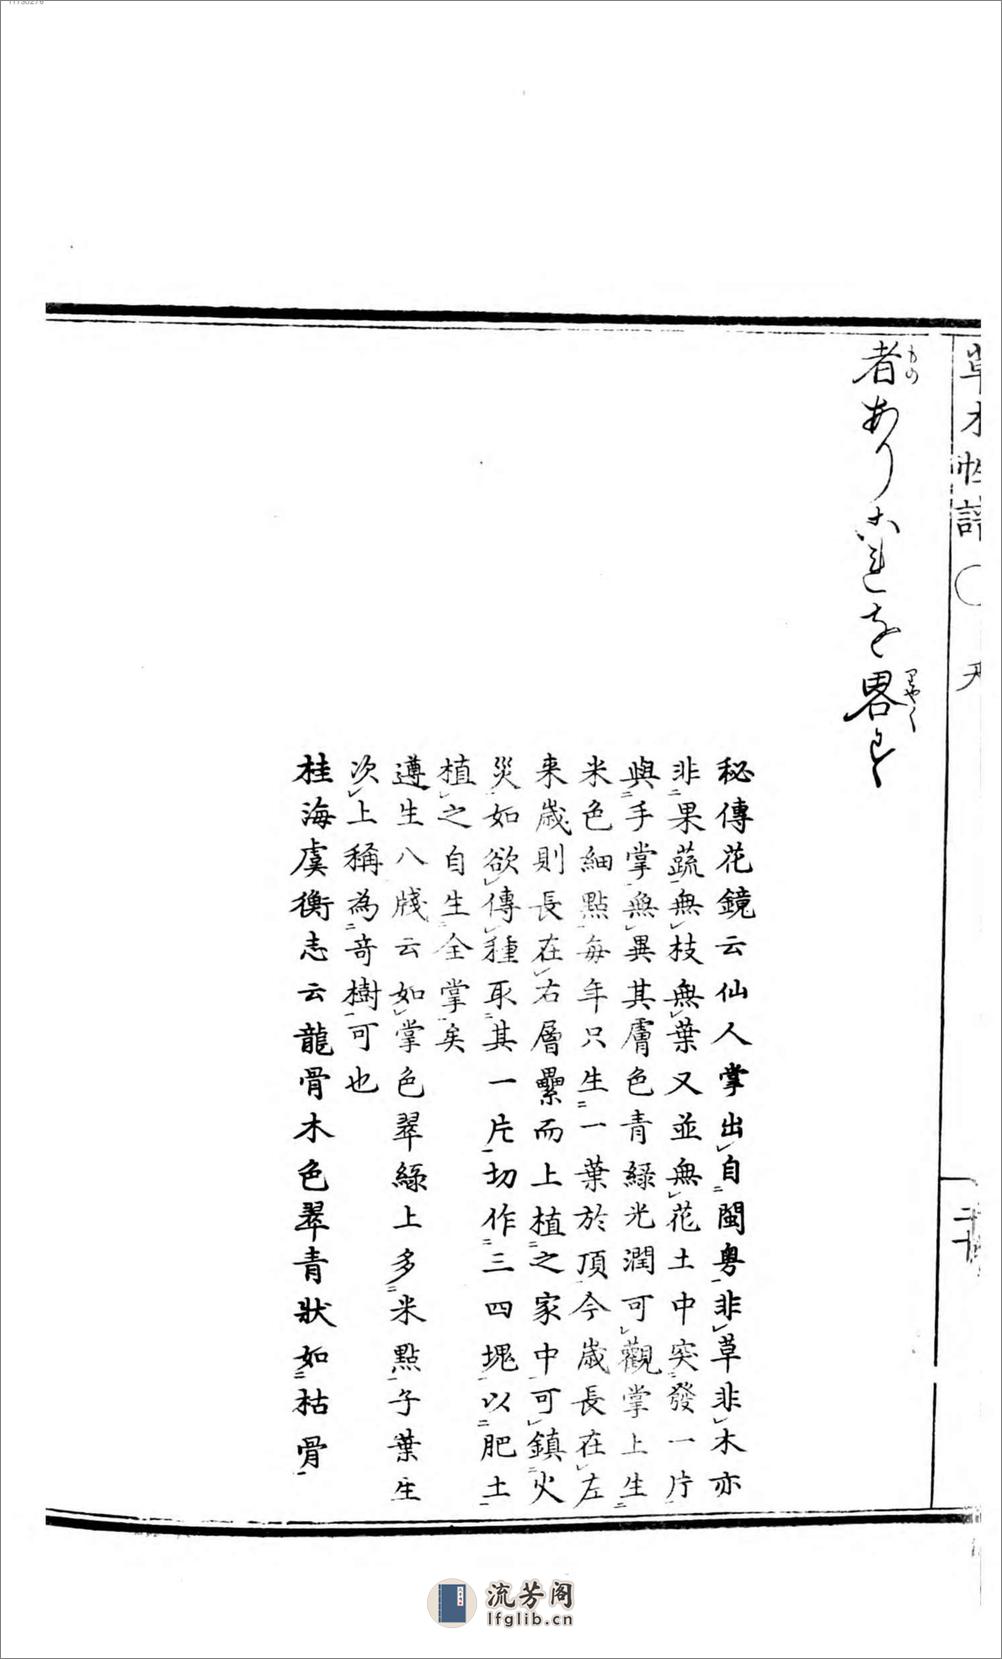 11730276
草木性譜 〇 天
二十
者ありこれを畧す
もの
りやく
秘傳花鏡云仙人掌出自閩粤非草非木亦
非果蔬無枝無葉又並無花土中突發一片
與手掌無異其膚色青綠光潤可觀掌上生
米色細點每年只生一葉於頂今歲長在左
来歲則長在右層纍而上植之家中可鎮火
災如欲傳種取其一片切作三四塊以肥土
植之自生全掌矣
遵生八牋云如掌色翠綠上多米點子葉生
次上稱為竒樹可也
桂海虞衡志云龍骨木色翠青狀如枯骨
流芳阁
lfglib.cn